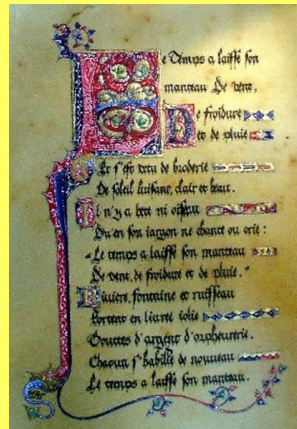 Le Temps a laissé son
manteau De vent,
De froidure
et de pluie
Et s'est vetu de broderie
De soleil luisant, clair et beau.
Il n'y a bete ni oiseau
Qu'en son jargon ne chante ou crie:
"Le temps a laissé son manteau
De vent, de froidure et de pluie."
Riviere, fontaine et ruisseau
Portent en livree jolie
Gouttes d'argent d'orpheverie.
Chacun s'habille de nouveau
Le temps a laissé son manteau.